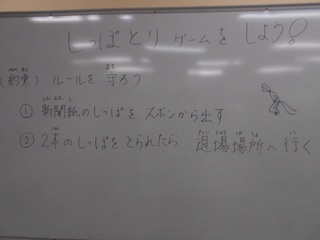 しっぽとり ゲームを しよう!
(約束) ルールを 守ろう
① 新聞紙のしっぽを ズボンから出す
② 2本のしっぽを とられたら 退場場所へ 行く